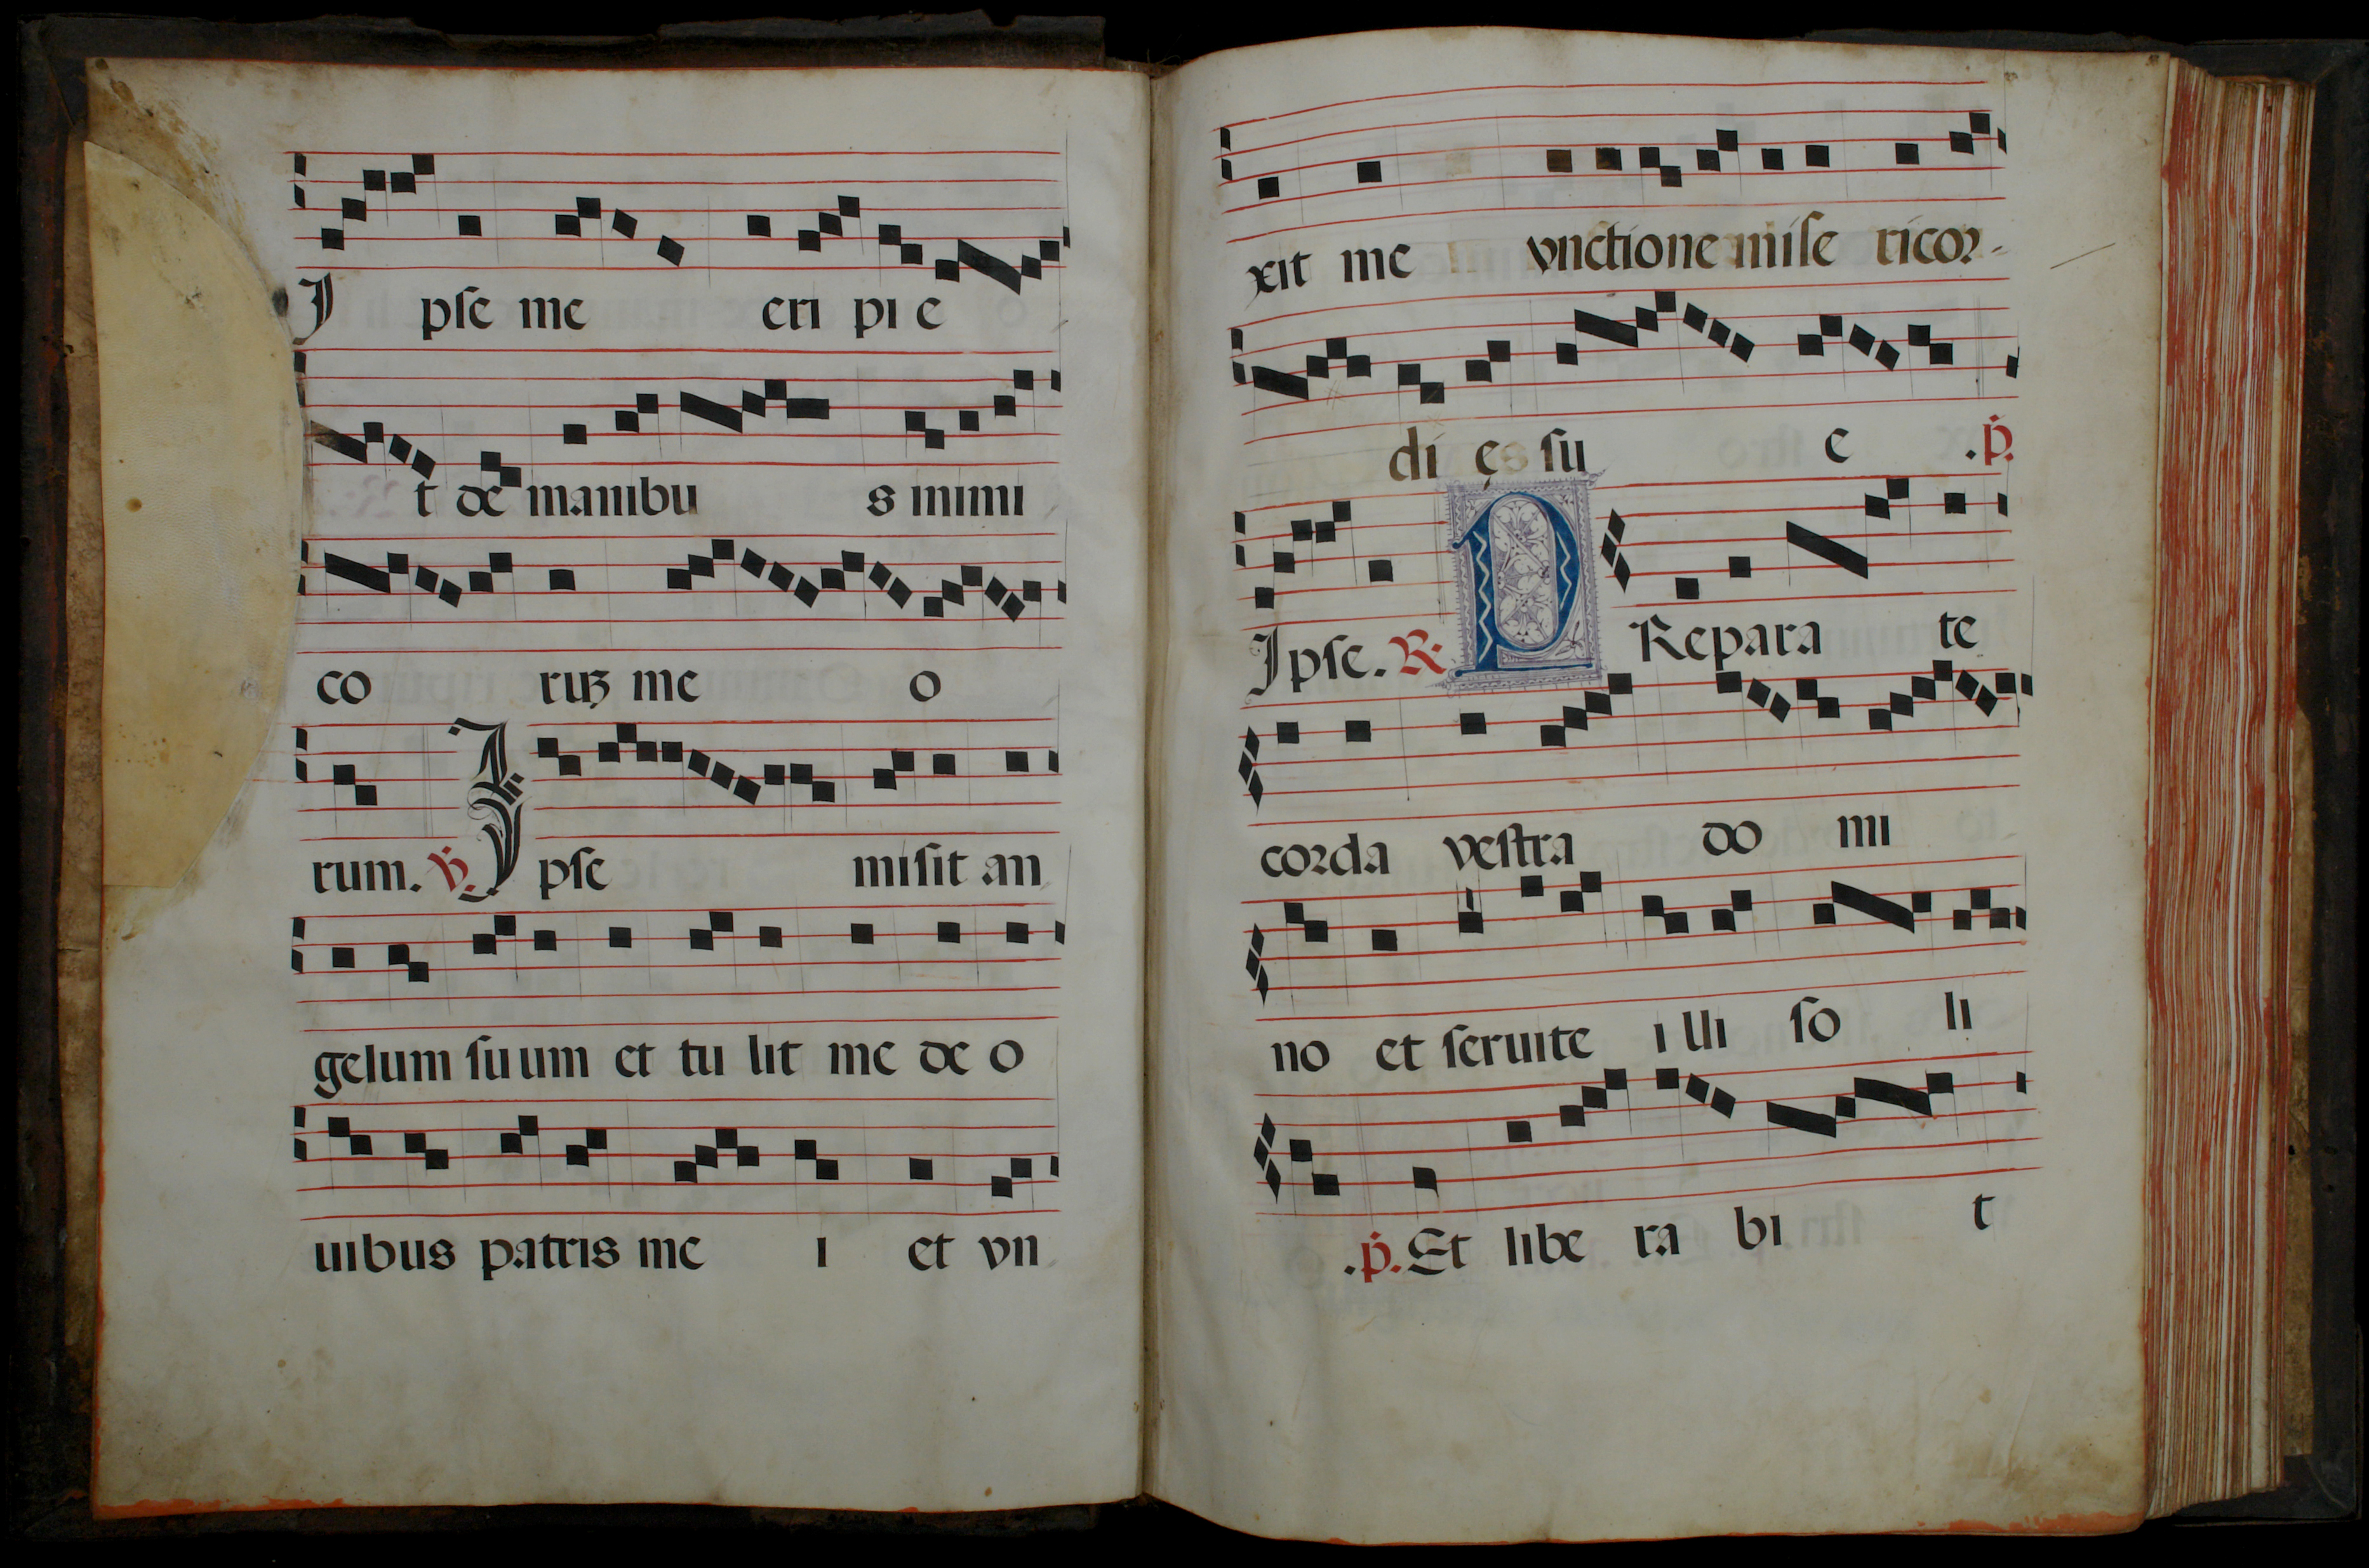 Ipſe me eripie
t de manibus inimi
coruʒ meo
rum. ℣. Ipſe miſit an
gelum ſuum et tulit me de o
uibus patris mei et vn
xit me vnctione miſericor-
dięs ſue .p̃.
Ipſe. ℟. PReparate
corda veſtra domi
no et ſeruite illi ſoli
.p̃. Et liberabit